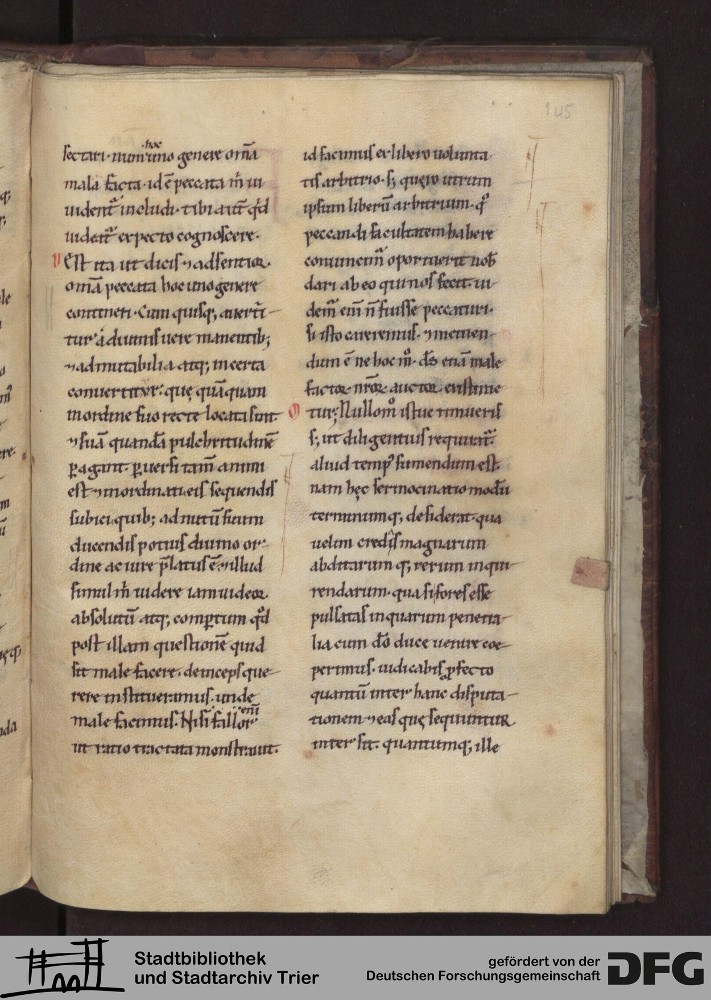 145
hoc
sectari· num uno genere om̄a
mala facta· id ē peccata m̄ ui
uident᷑ includi· tibi aūt qđ
uideat᷑ expecto cognoscere·
Est ita ut dicis ⁊ adsentior
om̄a peccata hoc uno genere
contineri· Cum quisq; auerti-
tur a diuinis uere manentib;
⁊ ad mutabilia atq; incerta
conuertitur· quę quāquam
in ordine suo recte locata sint·
⁊ suā quandā pulchritudinē
ꝑagant· ꝑuersi tam̄ animi
est ⁊ inordinati eis sequendis
subici quib; ad nutū suum
ducendis potius diuino or-
dine ac iure p̄latus ē· ⁊ illud
simul m̄ uidere iam uideor
absolutū atq; comꝑtum qđ
post illam questionē quid
sit male facere· deinceps que-
rere institueramus· unde
male facimus· Nisi fallor
eni
ut ratio tractata monstrauit·
id facimus ex libero uolunta-
tis arbitrio· s; quęro utrum
ipsum liberū arbitrium· qͦ
peccandi facultatem habere
conuincim᷒ oportuerit nob᷒
dari ab eo qui nos fecit· ui-
dem᷒ em̄ n̄ fuisse peccaturi·
si isto careremus· ⁊ metuen-
dum ē ne hoc mͦ· ds̄ etiā male
factor nr̄or᷒ auctor existime-
tur; Nullo mͦ istuc timueris
s; ut diligentius requirat᷑
aliud temp᷒ sumendum est·
nam hęc sermocinatio modū
terminumq; desiderat· qua
uelim credas magnarum
abditarumq; rerum inqui-
rendarum· quasi fores esse
pulsatas in quarum penetra-
lia cum dō duce uenire coe-
perimus· iudicabis ꝓfecto
quantū inter hanc disputa-
tionem ⁊ eas quę sequuntur
inter sit· quantumq; ille
Stadtbibliothek
und Stadtarchiv Trier
gefördert von der
Deutschen Forschungsgemeinschaft
DFG